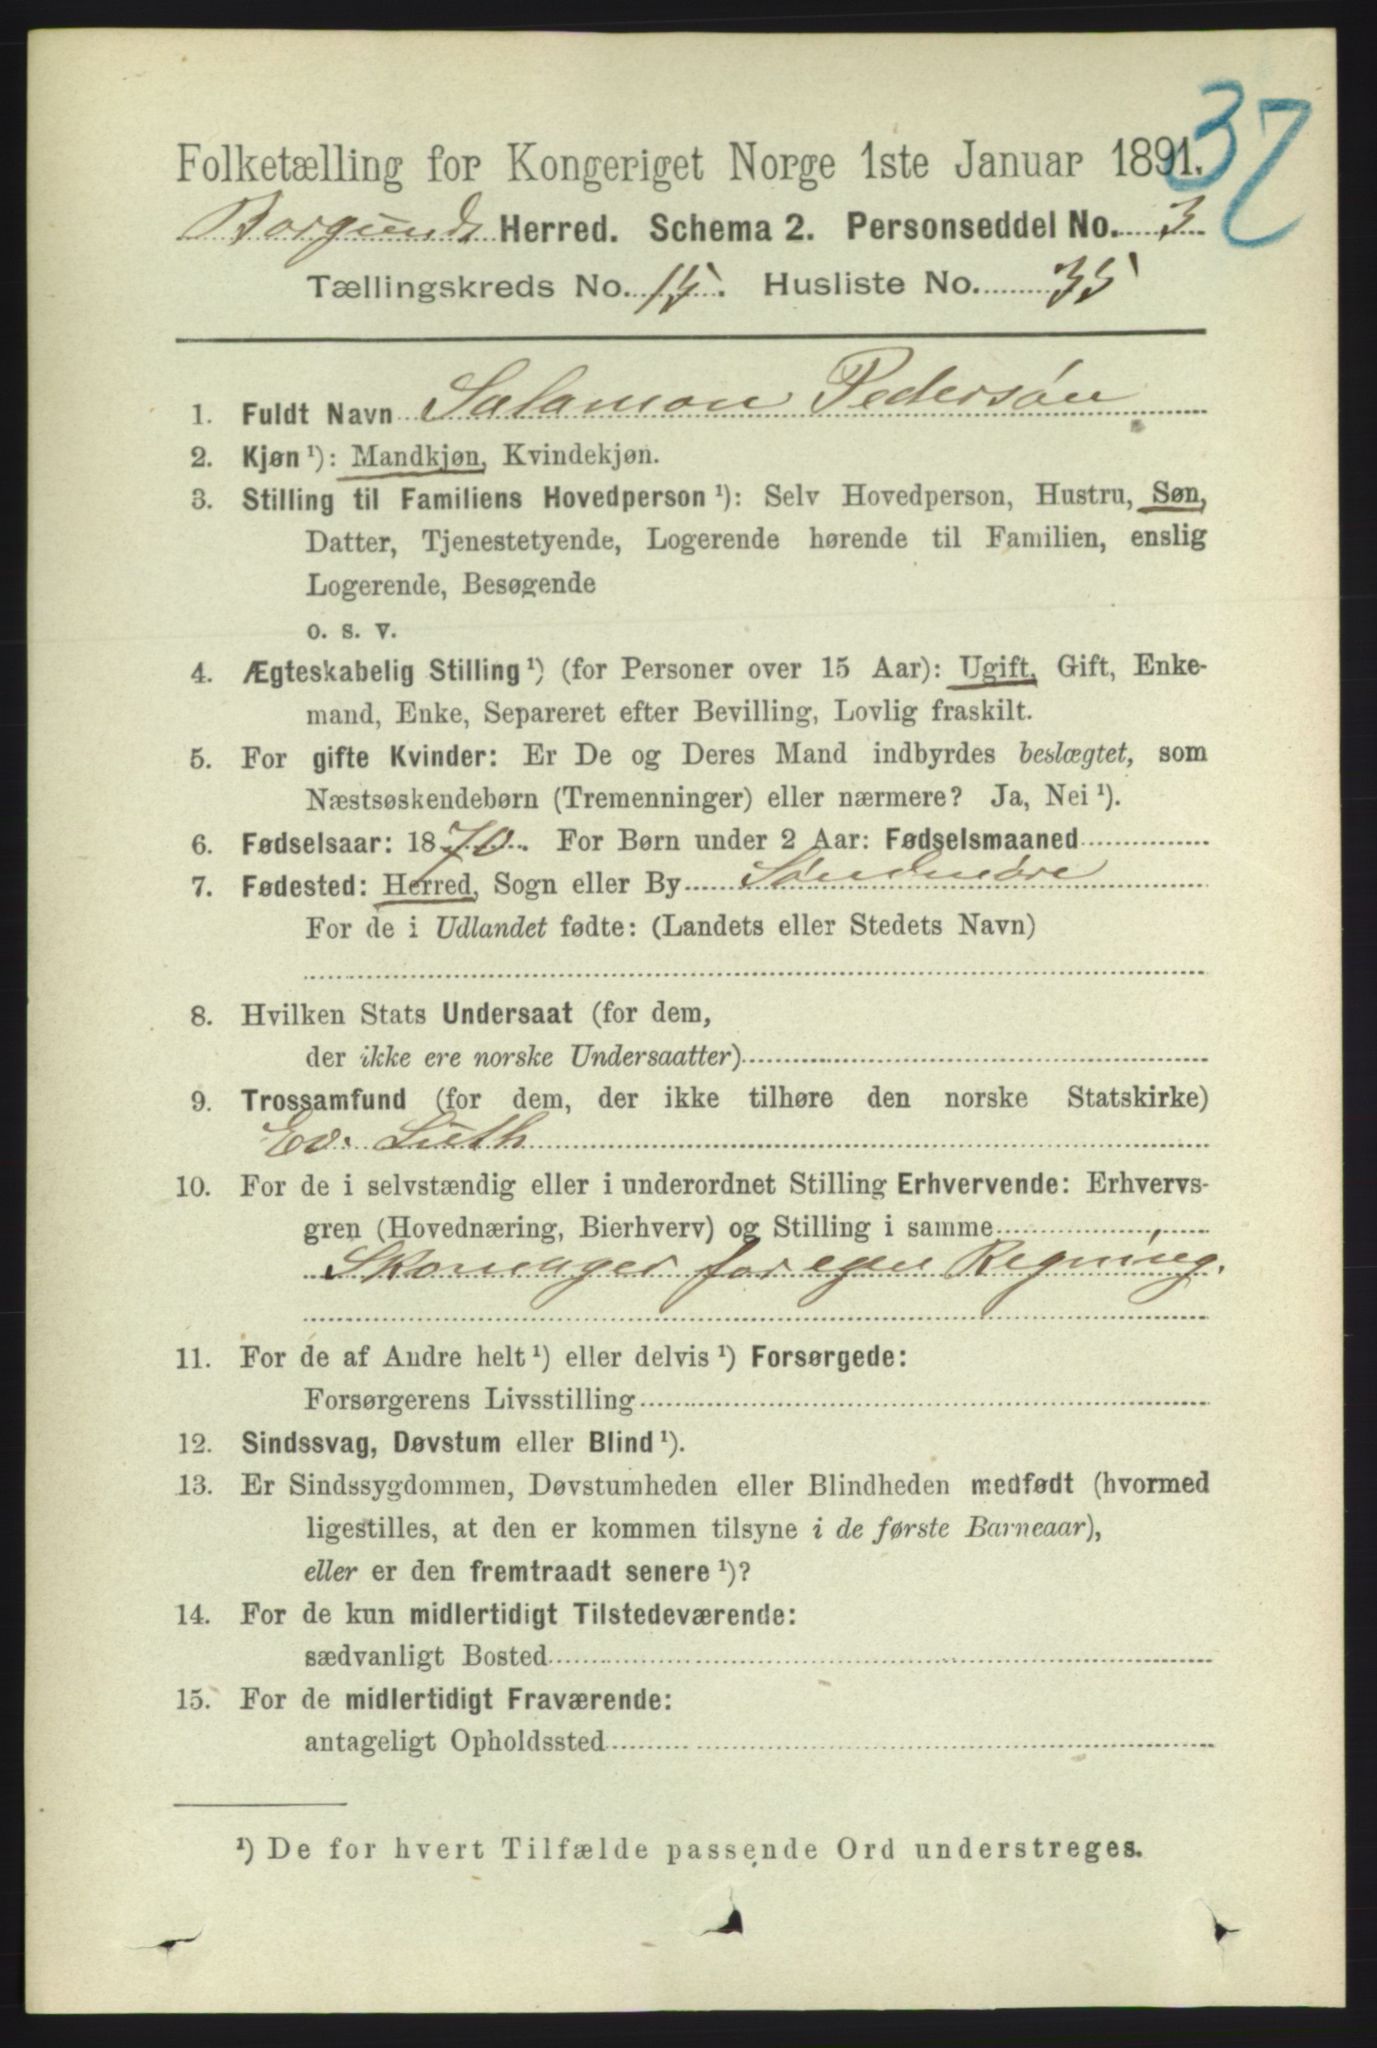 37
Folketælling for Kongeriget Norge 1ste Januar 1891.
Borgunds Herred. Schema 2. Personseddel No. 3
Tællingskreds No. 15. Husliste No. 35
1. Fuldt Navn Salamon Pedersøn
2. Kjøn ¹): Mandkjøn, Kvindekjøn.
3. Stilling til Familiens Hovedperson ¹): Selv Hovedperson, Hustru, Søn,
Datter, Tjenestetyende, Logerende hørende til Familien, enslig
Logerende, Besøgende
o. s. v.
4. Ægteskabelig Stilling ¹) (for Personer over 15 Aar): Ugift, Gift, Enke-
mand, Enke, Separeret efter Bevilling, Lovlig fraskilt.
5. For gifte Kvinder: Er De og Deres Mand indbyrdes beslægtet, som
Næstsøskendebørn (Tremenninger) eller nærmere? Ja, Nei ¹).
6. Fødselsaar: 1870. For Børn under 2 Aar: Fødselsmaaned
7. Fødested: Herred, Sogn eller By Søndmøre
For de i Udlandet fødte: (Landets eller Stedets Navn)
8. Hvilken Stats Undersaat (for dem,
der ikke ere norske Undersaatter)
9. Trossamfund (for dem, der ikke tilhøre den norske Statskirke)
Ev. Luth
10. For de i selvstændig eller i underordnet Stilling Erhvervende: Erhvervs-
gren (Hovednæring, Bierhverv) og Stilling i samme
Skomager for egen Regning.
11. For de af Andre helt ¹) eller delvis ¹) Forsørgede:
Forsørgerens Livsstilling
12. Sindssvag, Døvstum eller Blind ¹).
13. Er Sindssygdommen, Døvstumheden eller Blindheden medfødt (hvormed
ligestilles, at den er kommen tilsyne i de første Barneaar),
eller er den fremtraadt senere ¹)?
14. For de kun midlertidigt Tilstedeværende:
sædvanligt Bosted
15. For de midlertidigt Fraværende:
antageligt Opholdssted
¹) De for hvert Tilfælde passende Ord understreges.